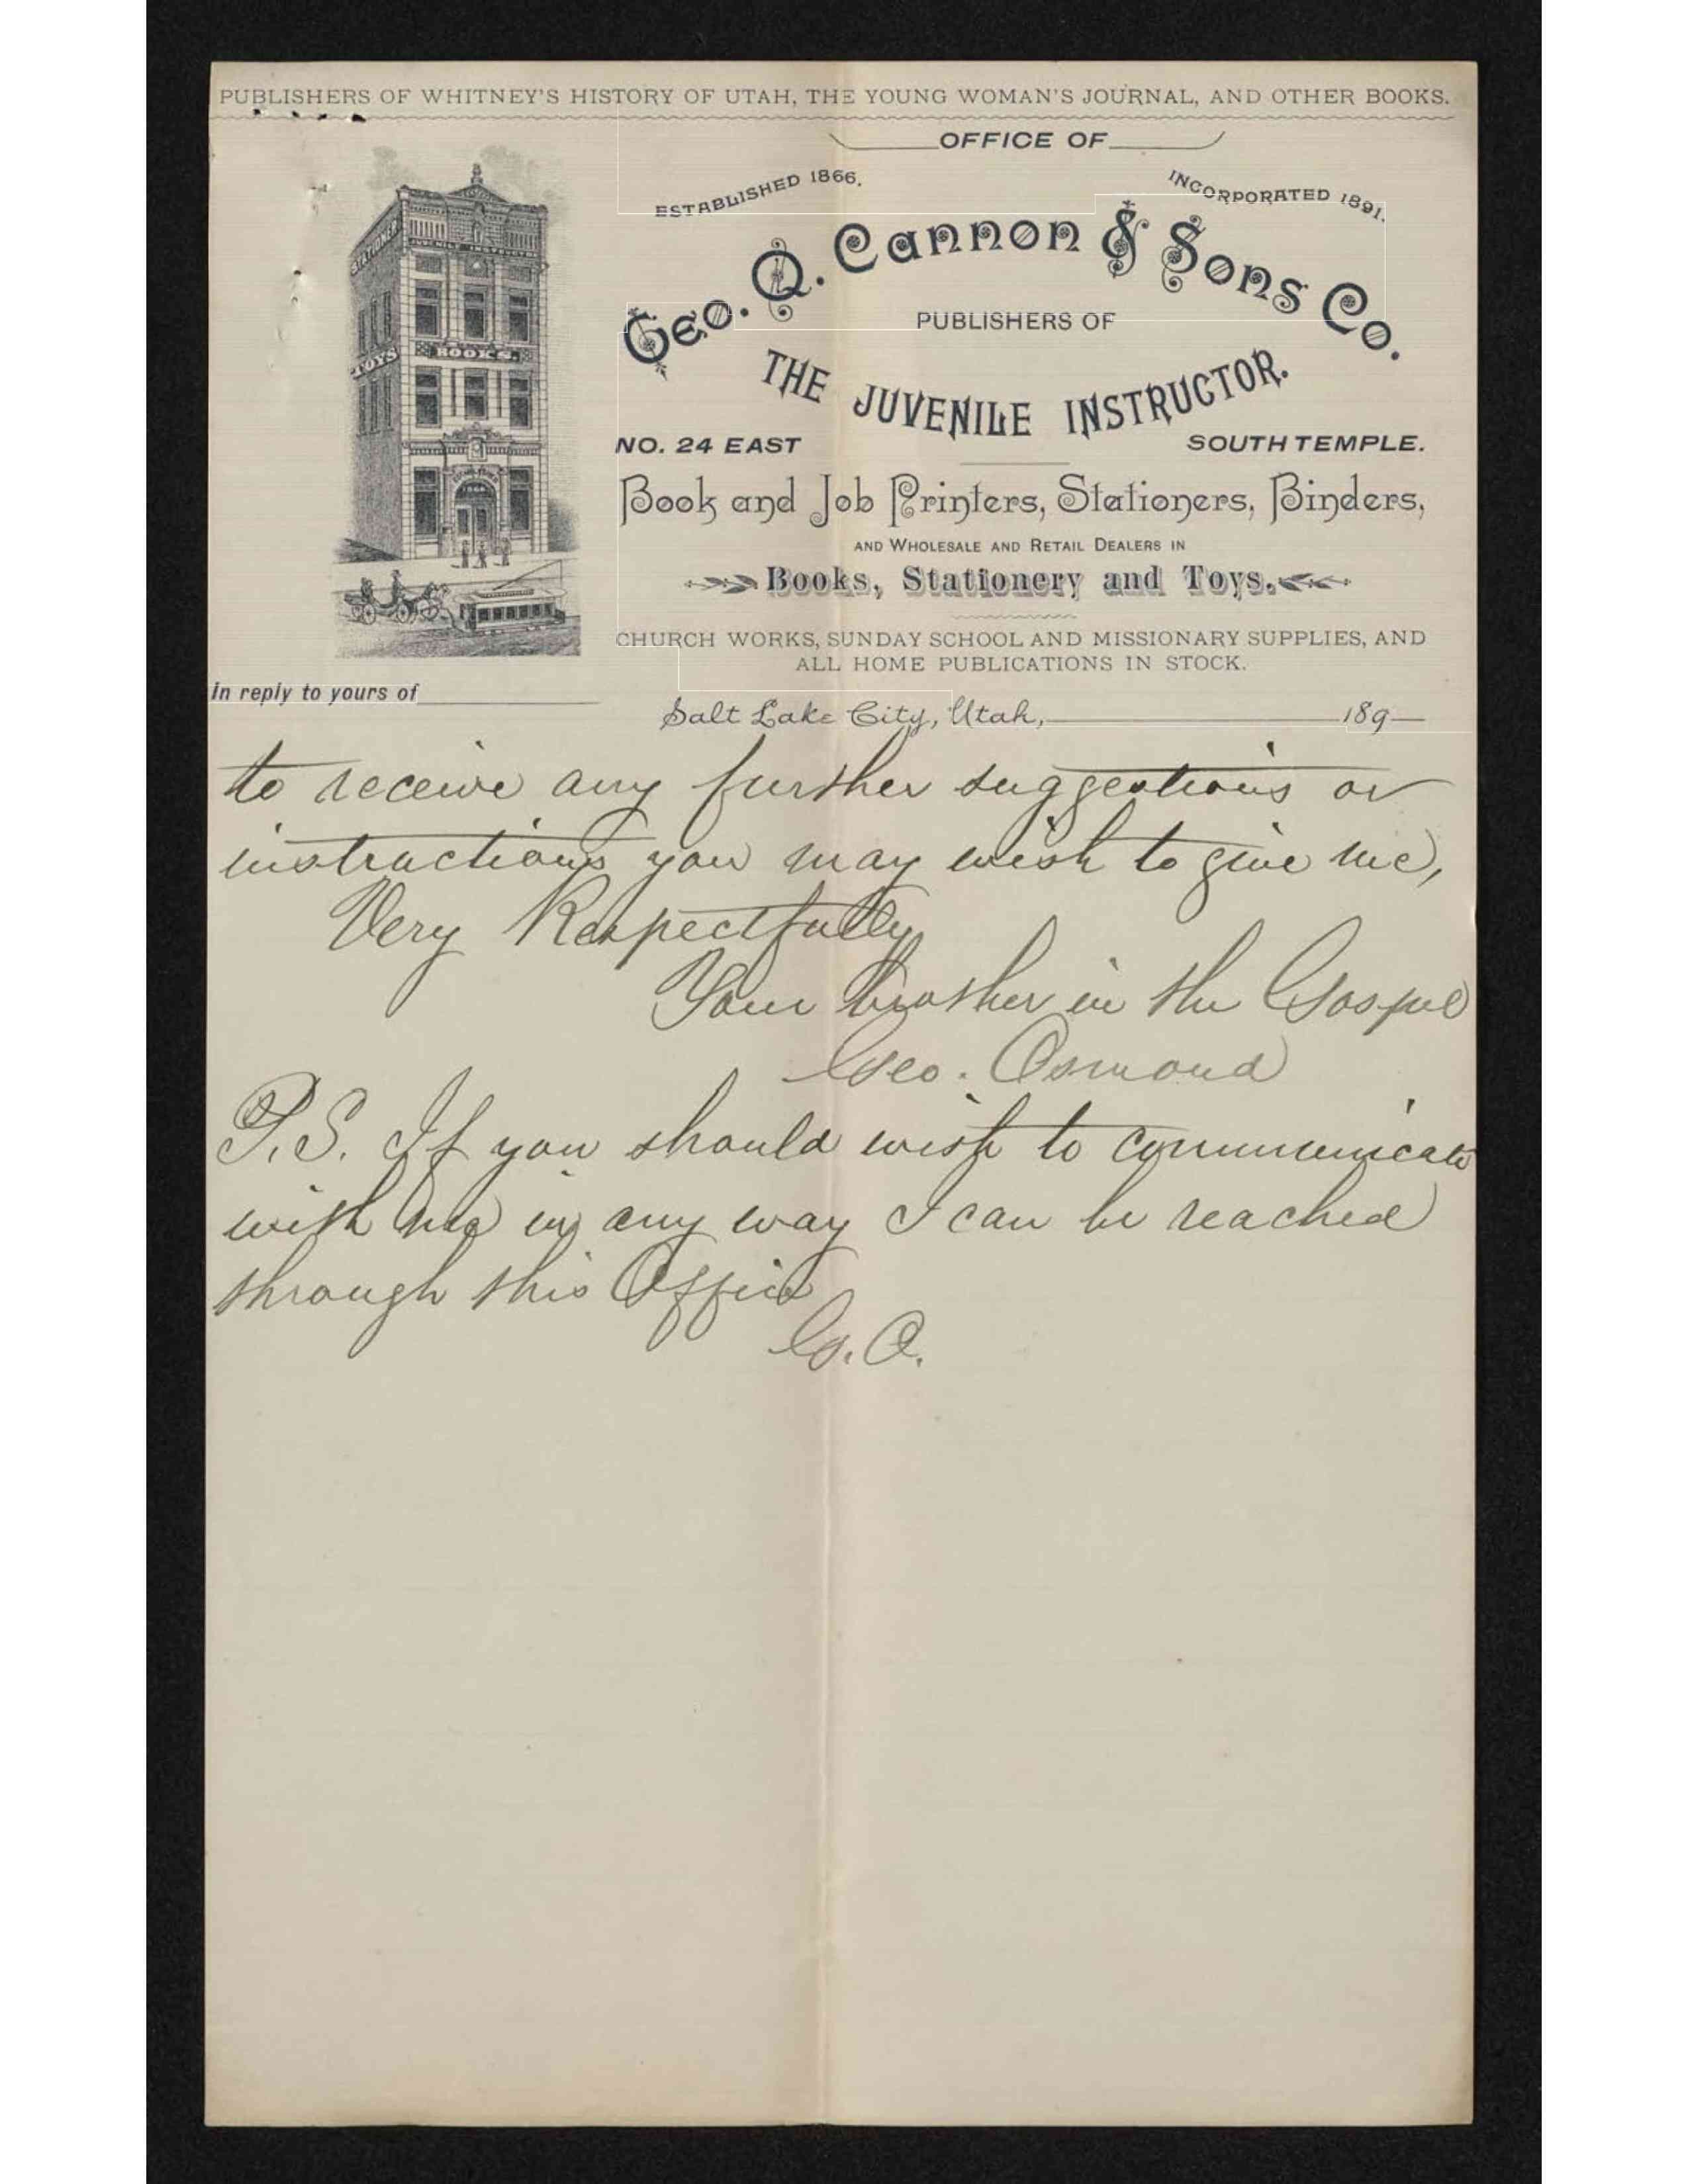 PUBLISHERS OF WHITNEY'S HISTORY OF UTAH, THE YOUNG WOMAN'S JOURNAL, AND OTHER BOOKS.
OFFICE OF
ESTABLISHED 1866. INCORPORATED 1891.
Geo. Q. Cannon & Sons Co.
PUBLISHERS OF
THE JUVENILE INSTRUCTOR.
STATIONER
TOYS BOOKS.
NO. 24 EAST SOUTH TEMPLE.
Book and Job Printers, Stationers, Binders,
AND WHOLESALE AND RETAIL DEALERS IN
Books, Stationery and Toys.
CHURCH WORKS, SUNDAY SCHOOL AND MISSIONARY SUPPLIES, AND
ALL HOME PUBLICATIONS IN STOCK.
In reply to yours of
Salt Lake City, Utah, 189
to receive any further suggestions or
instructions you may wish to give me,
Very Respectfully
Your brother in the Gospel
Geo. Osmond
P.S. If you should wish to communicate
with me in any way I can be reached
through this Office
G.O.